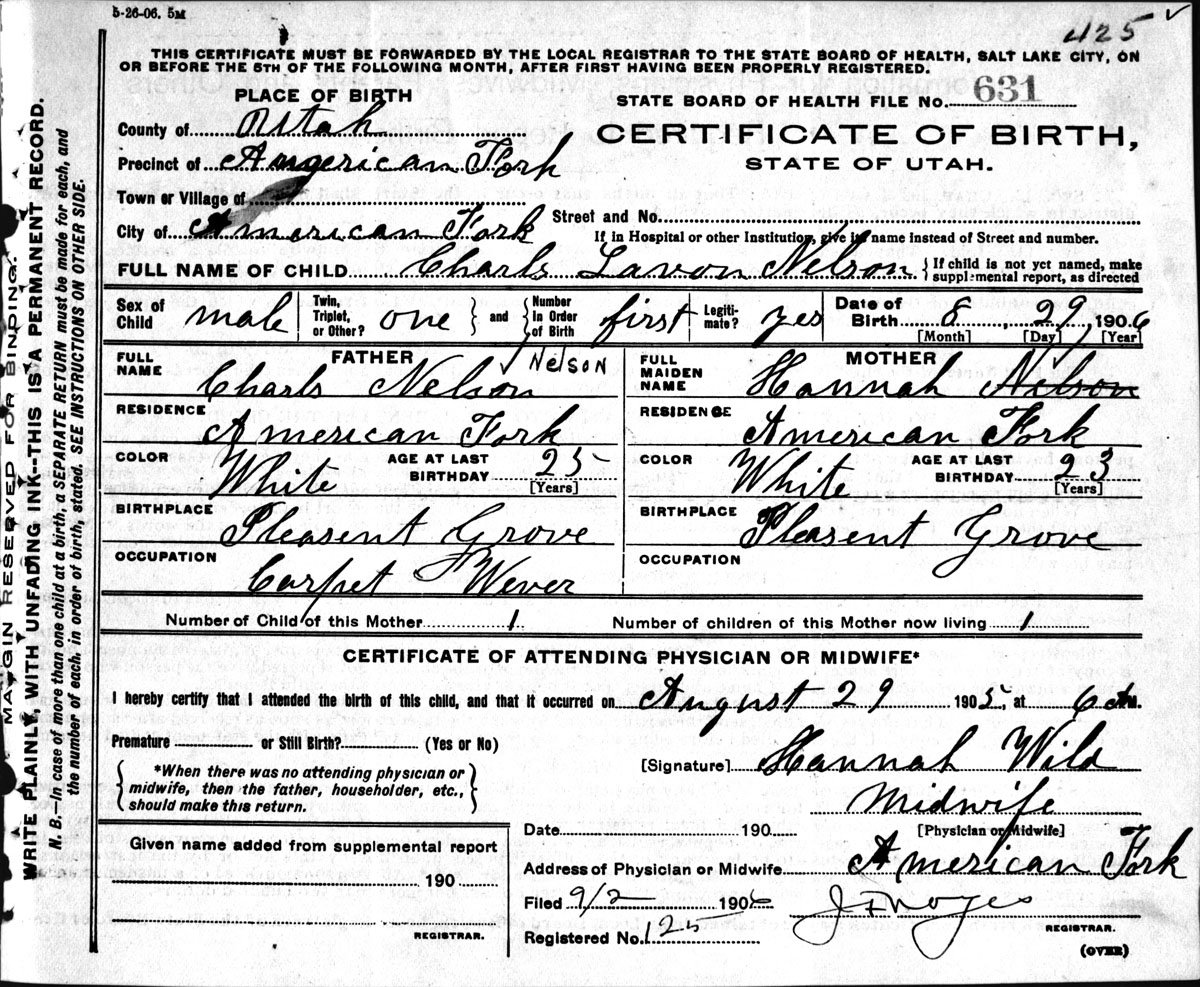 5-26-06. 5M
425
THIS CERTIFICATE MUST BE FORWARDED BY THE LOCAL REGISTRAR TO THE STATE BOARD OF HEALTH, SALT LAKE CITY, ON
OR BEFORE THE 5TH OF THE FOLLOWING MONTH, AFTER FIRST HAVING BEEN PROPERLY REGISTERED.
PLACE OF BIRTH
STATE BOARD OF HEALTH FILE No. 631
County of Utah
CERTIFICATE OF BIRTH,
STATE OF UTAH.
Precinct of American Fork
Town or Village of
Street and No.
City of American Fork
If in Hospital or other Institution, give its name instead of Street and number.
FULL NAME OF CHILD Charls Lavon Nelson { If child is not yet named, make
supplemental report, as directed
Sex of Child male Twin, Triplet, or Other? one } and { Number In Order of Birth first Legiti-mate? yes Date of Birth 8, 29, 1906
[Month] [Day] [Year]
FATHER
FULL NAME Charls Nelson
RESIDENCE American Fork
COLOR White AGE AT LAST BIRTHDAY 25 [Years]
BIRTHPLACE Pleasent Grove
OCCUPATION Carpet Wever
Nelson
MOTHER
FULL MAIDEN NAME Hannah Nelson
RESIDENCE American Fork
COLOR White AGE AT LAST BIRTHDAY 23 [Years]
BIRTHPLACE Pleasent Grove
OCCUPATION
Number of Child of this Mother 1 Number of children of this Mother now living 1
CERTIFICATE OF ATTENDING PHYSICIAN OR MIDWIFE*
I hereby certify that I attended the birth of this child, and that it occurred on August 29 1905, at 6 M.
Premature or Still Birth? (Yes or No)
{ *When there was no attending physician or
midwife, then the father, householder, etc.,
should make this return. }
[Signature] Hannah Wild
Midwife
Date 190 [Physician or Midwife]
Given name added from supplemental report
190
REGISTRAR.
Address of Physician or Midwife American Fork
Filed 9/2 1906 J F Noyes
REGISTRAR.
Registered No. 125
(OVER)
MARGIN RESERVED FOR BINDING.
WRITE PLAINLY, WITH UNFADING INK--THIS IS A PERMANENT RECORD.
N. B.--In case of more than one child at a birth, a SEPARATE RETURN must be made for each, and
the number of each, in order of birth, stated. SEE INSTRUCTIONS ON OTHER SIDE.